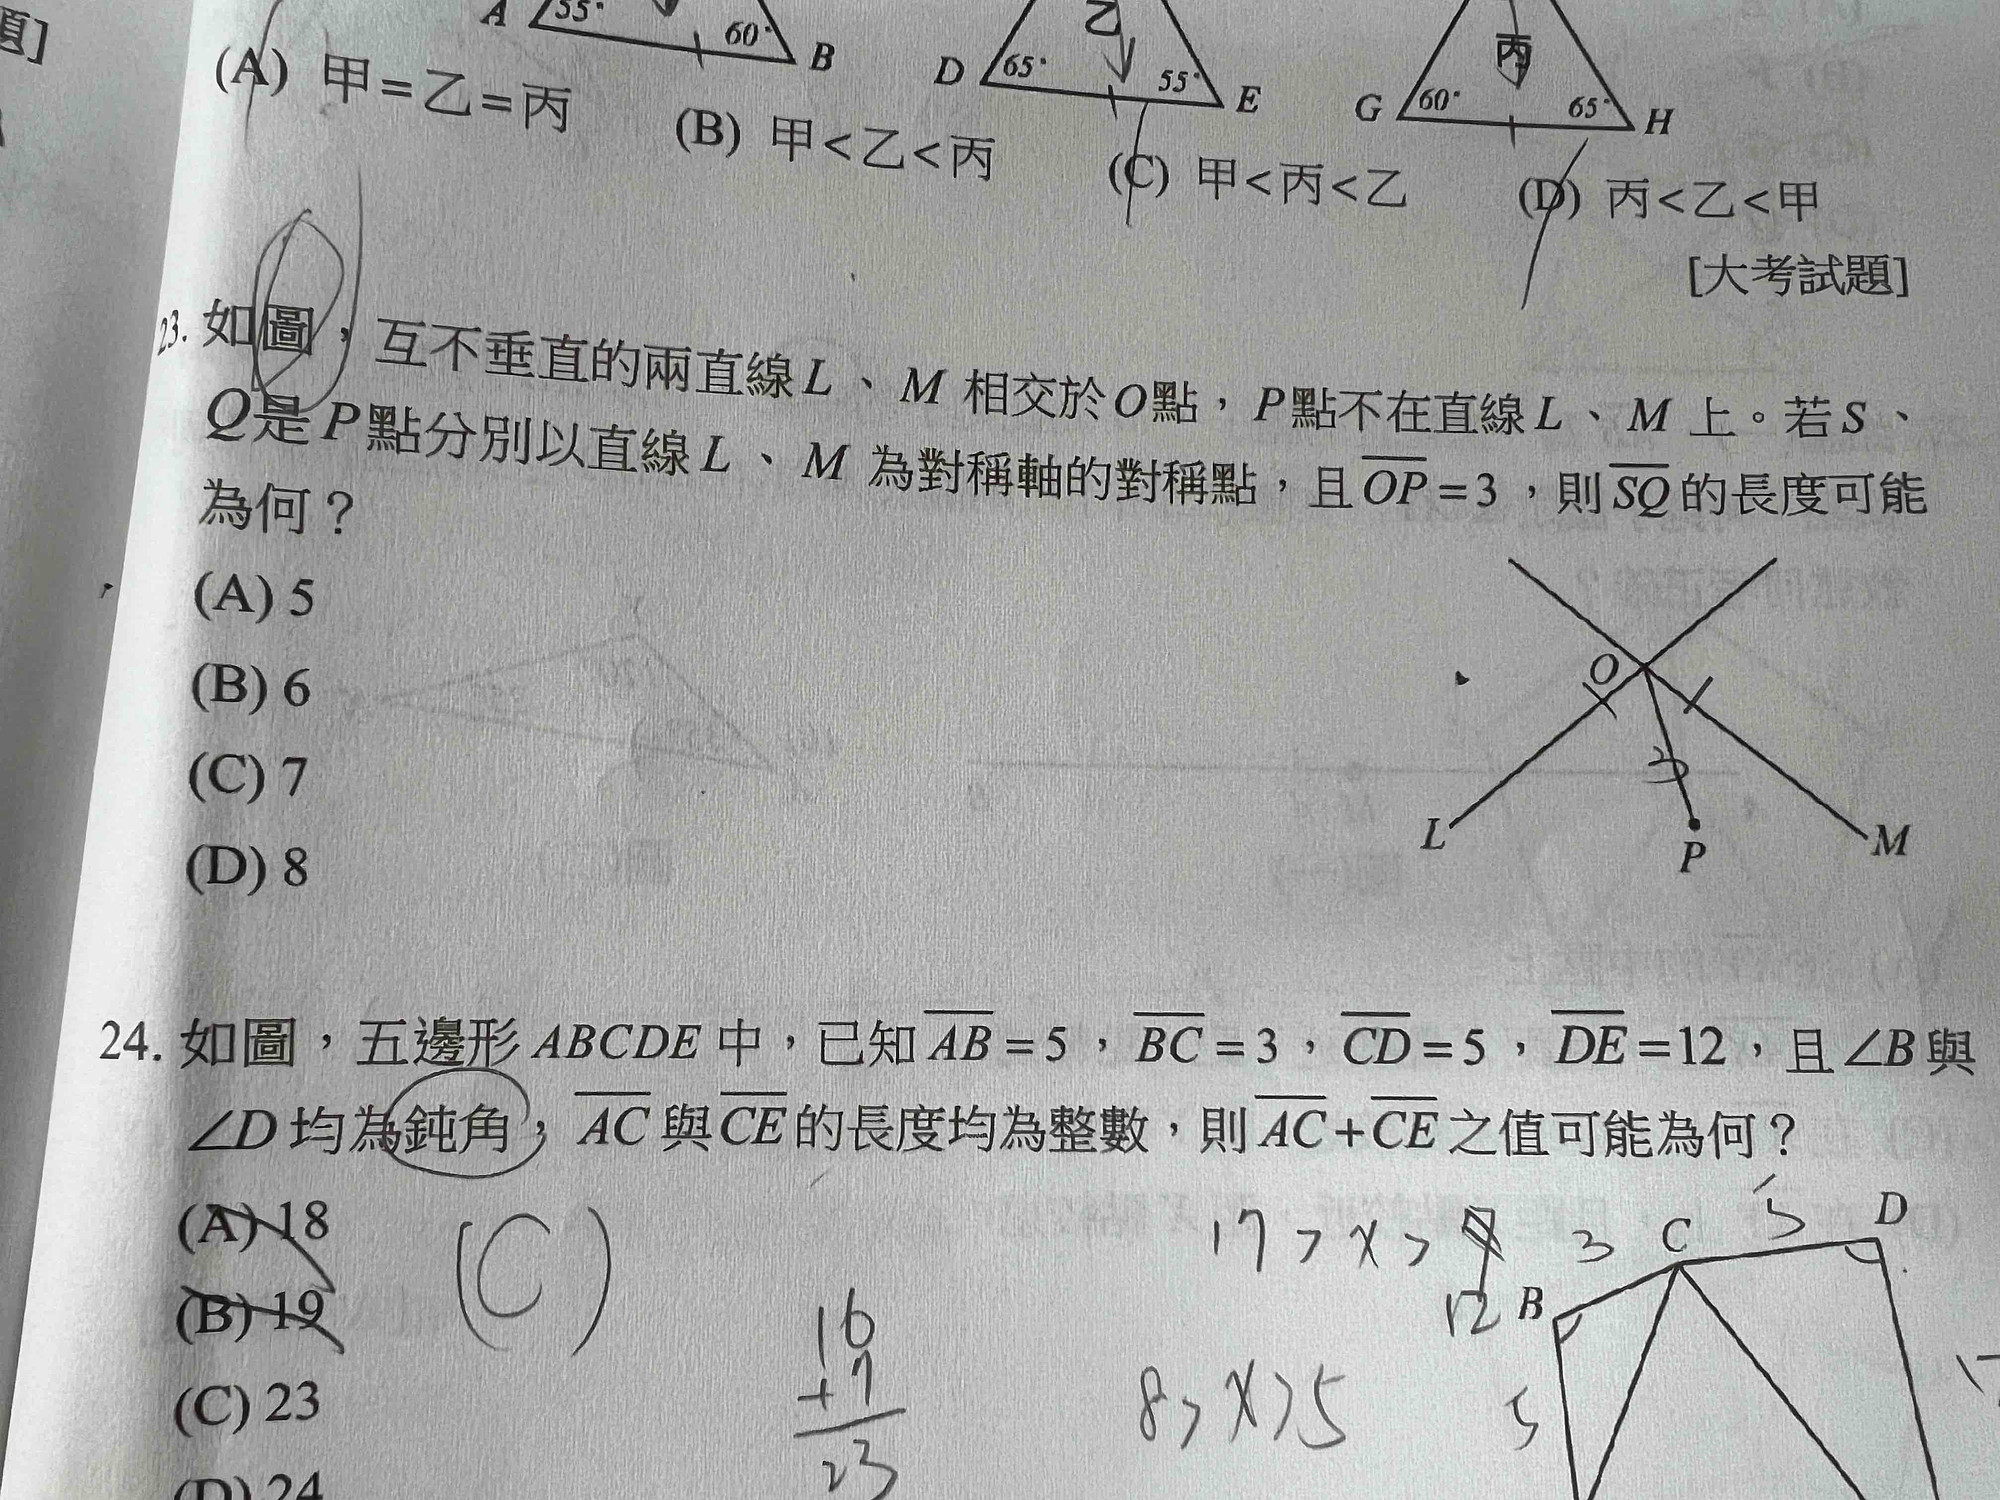 題]
A 55° 60° B
D 65° 乙 55° E
G 60° 丙 65° H
(A) 甲=乙=丙
(B) 甲<乙<丙
(C) 甲<丙<乙
(D) 丙<乙<甲
[大考試題]
23. 如圖，互不垂直的兩直線L、M相交於O點，P點不在直線L、M上。若S、
Q是P點分別以直線L、M為對稱軸的對稱點，且OP=3，則SQ的長度可能
為何？
(A) 5
(B) 6
(C) 7
(D) 8
O
3
L
P
M
24. 如圖，五邊形ABCDE中，已知AB=5，BC=3，CD=5，DE=12，且∠B與
∠D均為鈍角，AC與CE的長度均為整數，則AC+CE之值可能為何？
(A) 18
(B) 19
(C) 23
(D) 24
(C)
16
+7
23
17>x>
12
8>x>5
3 C 5 D
B
5